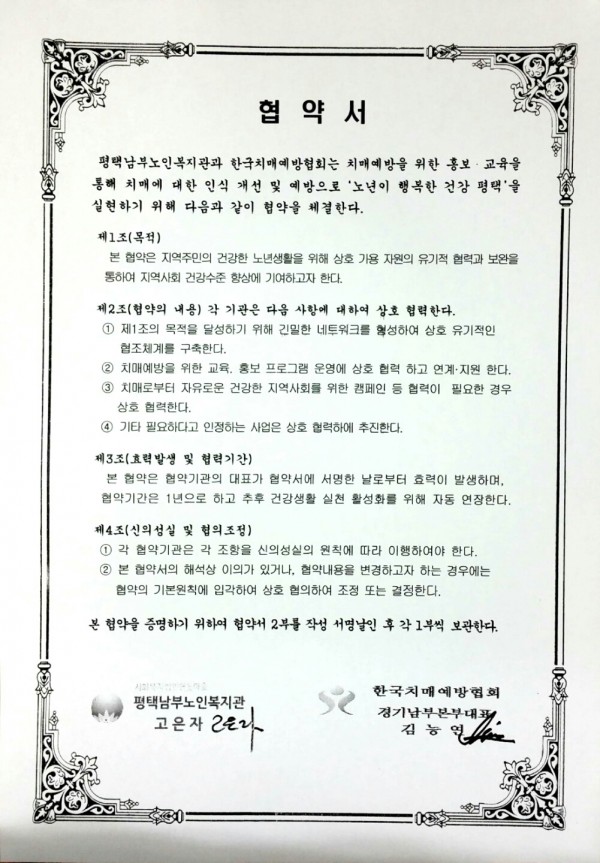 협약서
평택남부노인복지관과 한국치매예방협회는 치매예방을 위한 홍보·교육을
통해 치매에 대한 인식 개선 및 예방으로 '노년이 행복한 건강 평택'을
실현하기 위해 다음과 같이 협약을 체결한다.
제1조(목적)
본 협약은 지역주민의 건강한 노년생활을 위해 상호 가용 자원의 유기적 협력과 보완을
통하여 지역사회 건강수준 향상에 기여하고자 한다.
제2조(협약의 내용) 각 기관은 다음 사항에 대하여 상호 협력한다.
① 제1조의 목적을 달성하기 위해 긴밀한 네트워크를 형성하여 상호 유기적인
협조체계를 구축한다.
② 치매예방을 위한 교육. 홍보 프로그램 운영에 상호 협력 하고 연계·지원 한다.
③ 치매로부터 자유로운 건강한 지역사회를 위한 캠페인 등 협력이 필요한 경우
상호 협력한다.
④ 기타 필요하다고 인정하는 사업은 상호 협력하에 추진한다.
제3조(효력발생 및 협력기간)
본 협약은 협약기관의 대표가 협약서에 서명한 날로부터 효력이 발생하며,
협약기간은 1년으로 하고 추후 건강생활 실천 활성화를 위해 자동 연장한다.
제4조(신의성실 및 협의조정)
① 각 협약기관은 각 조항을 신의성실의 원칙에 따라 이행하여야 한다.
② 본 협약서의 해석상 이의가 있거나, 협약내용을 변경하고자 하는 경우에는
협약의 기본원칙에 입각하여 상호 협의하여 조정 또는 결정한다.
본 협약을 증명하기 위하여 협약서 2부를 작성 서명날인 후 각 1부씩 보관한다.
평택남부노인복지관
고은자 고은자
한국치매예방협회
경기남부본부대표
김능연